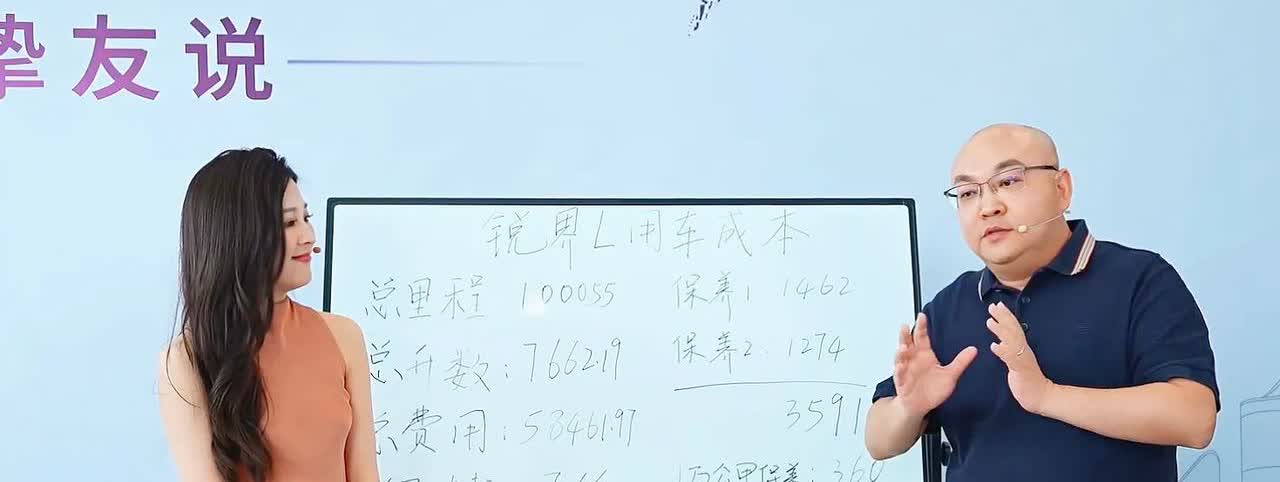 挚友说
锐界L用车成本
总里程 100055
总升数:7662.19
总费用:58461.97
7.66
保养1 1462
保养2. 1274
3591
1万公里保养:360